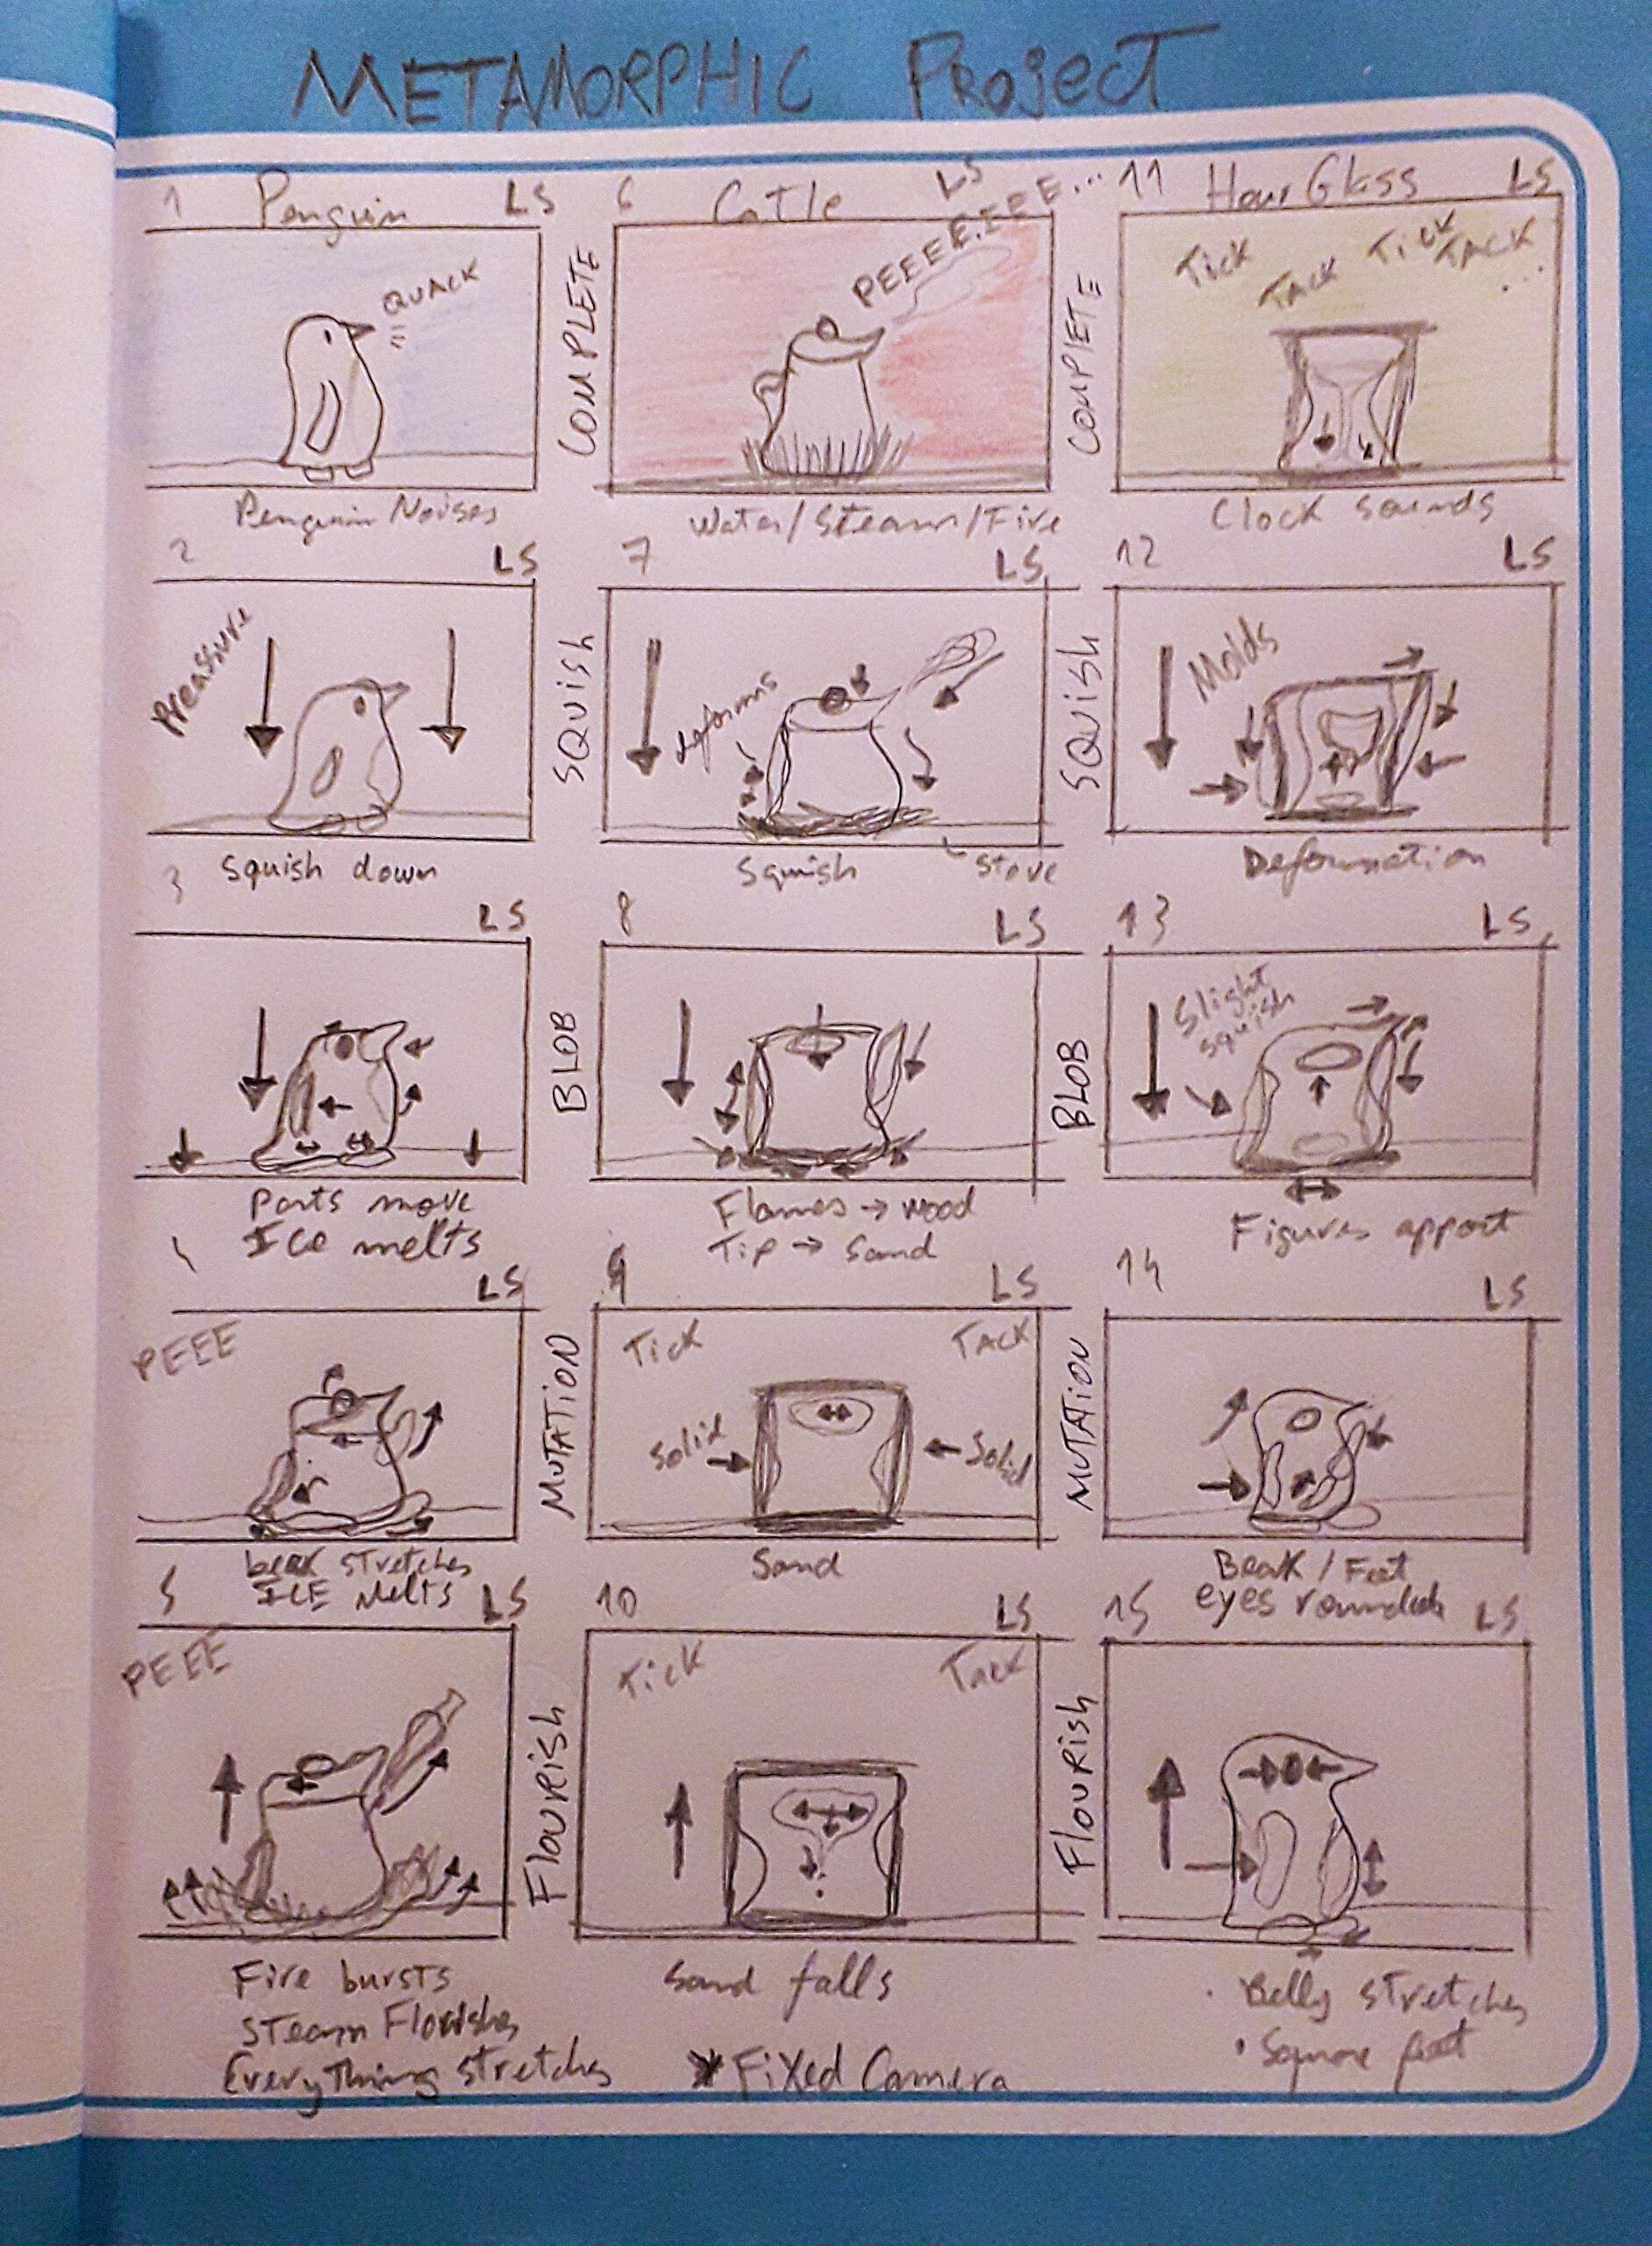 METAMORPHIC Project
1 Penguin LS
QUACK
Penguin Noises
COMPLETE
6 Catle LS
PEEEEEEE...
Water/Steam/Fire
COMPLETE
11 HourGlass LS
Tick TACK Tick TACK ...
Clock sounds
2 LS
Preassure
Squish down
SQUISH
7 LS
deforms
Squish
Stove
SQUISH
12 LS
Molds
Deformation
3 LS
Parts move
ICe melts
BLOB
8 LS
Flames → wood
Tip → Sand
BLOB
13 LS
Slight
squish
Figures apport
LS
PEEE
beak stretches
ICE Melts
MUTATION
9 LS
Tick TACK
Solid Solid
Sand
MUTATION
14 LS
Beak / Feet
eyes rounded
5 LS
PEEE
Fire bursts
Steam Florishes
Everything stretches
Flourish
10 LS
Tick Tack
Sand falls
* Fixed Camera
Flourish
15 LS
· Belly stretches
· Square feet